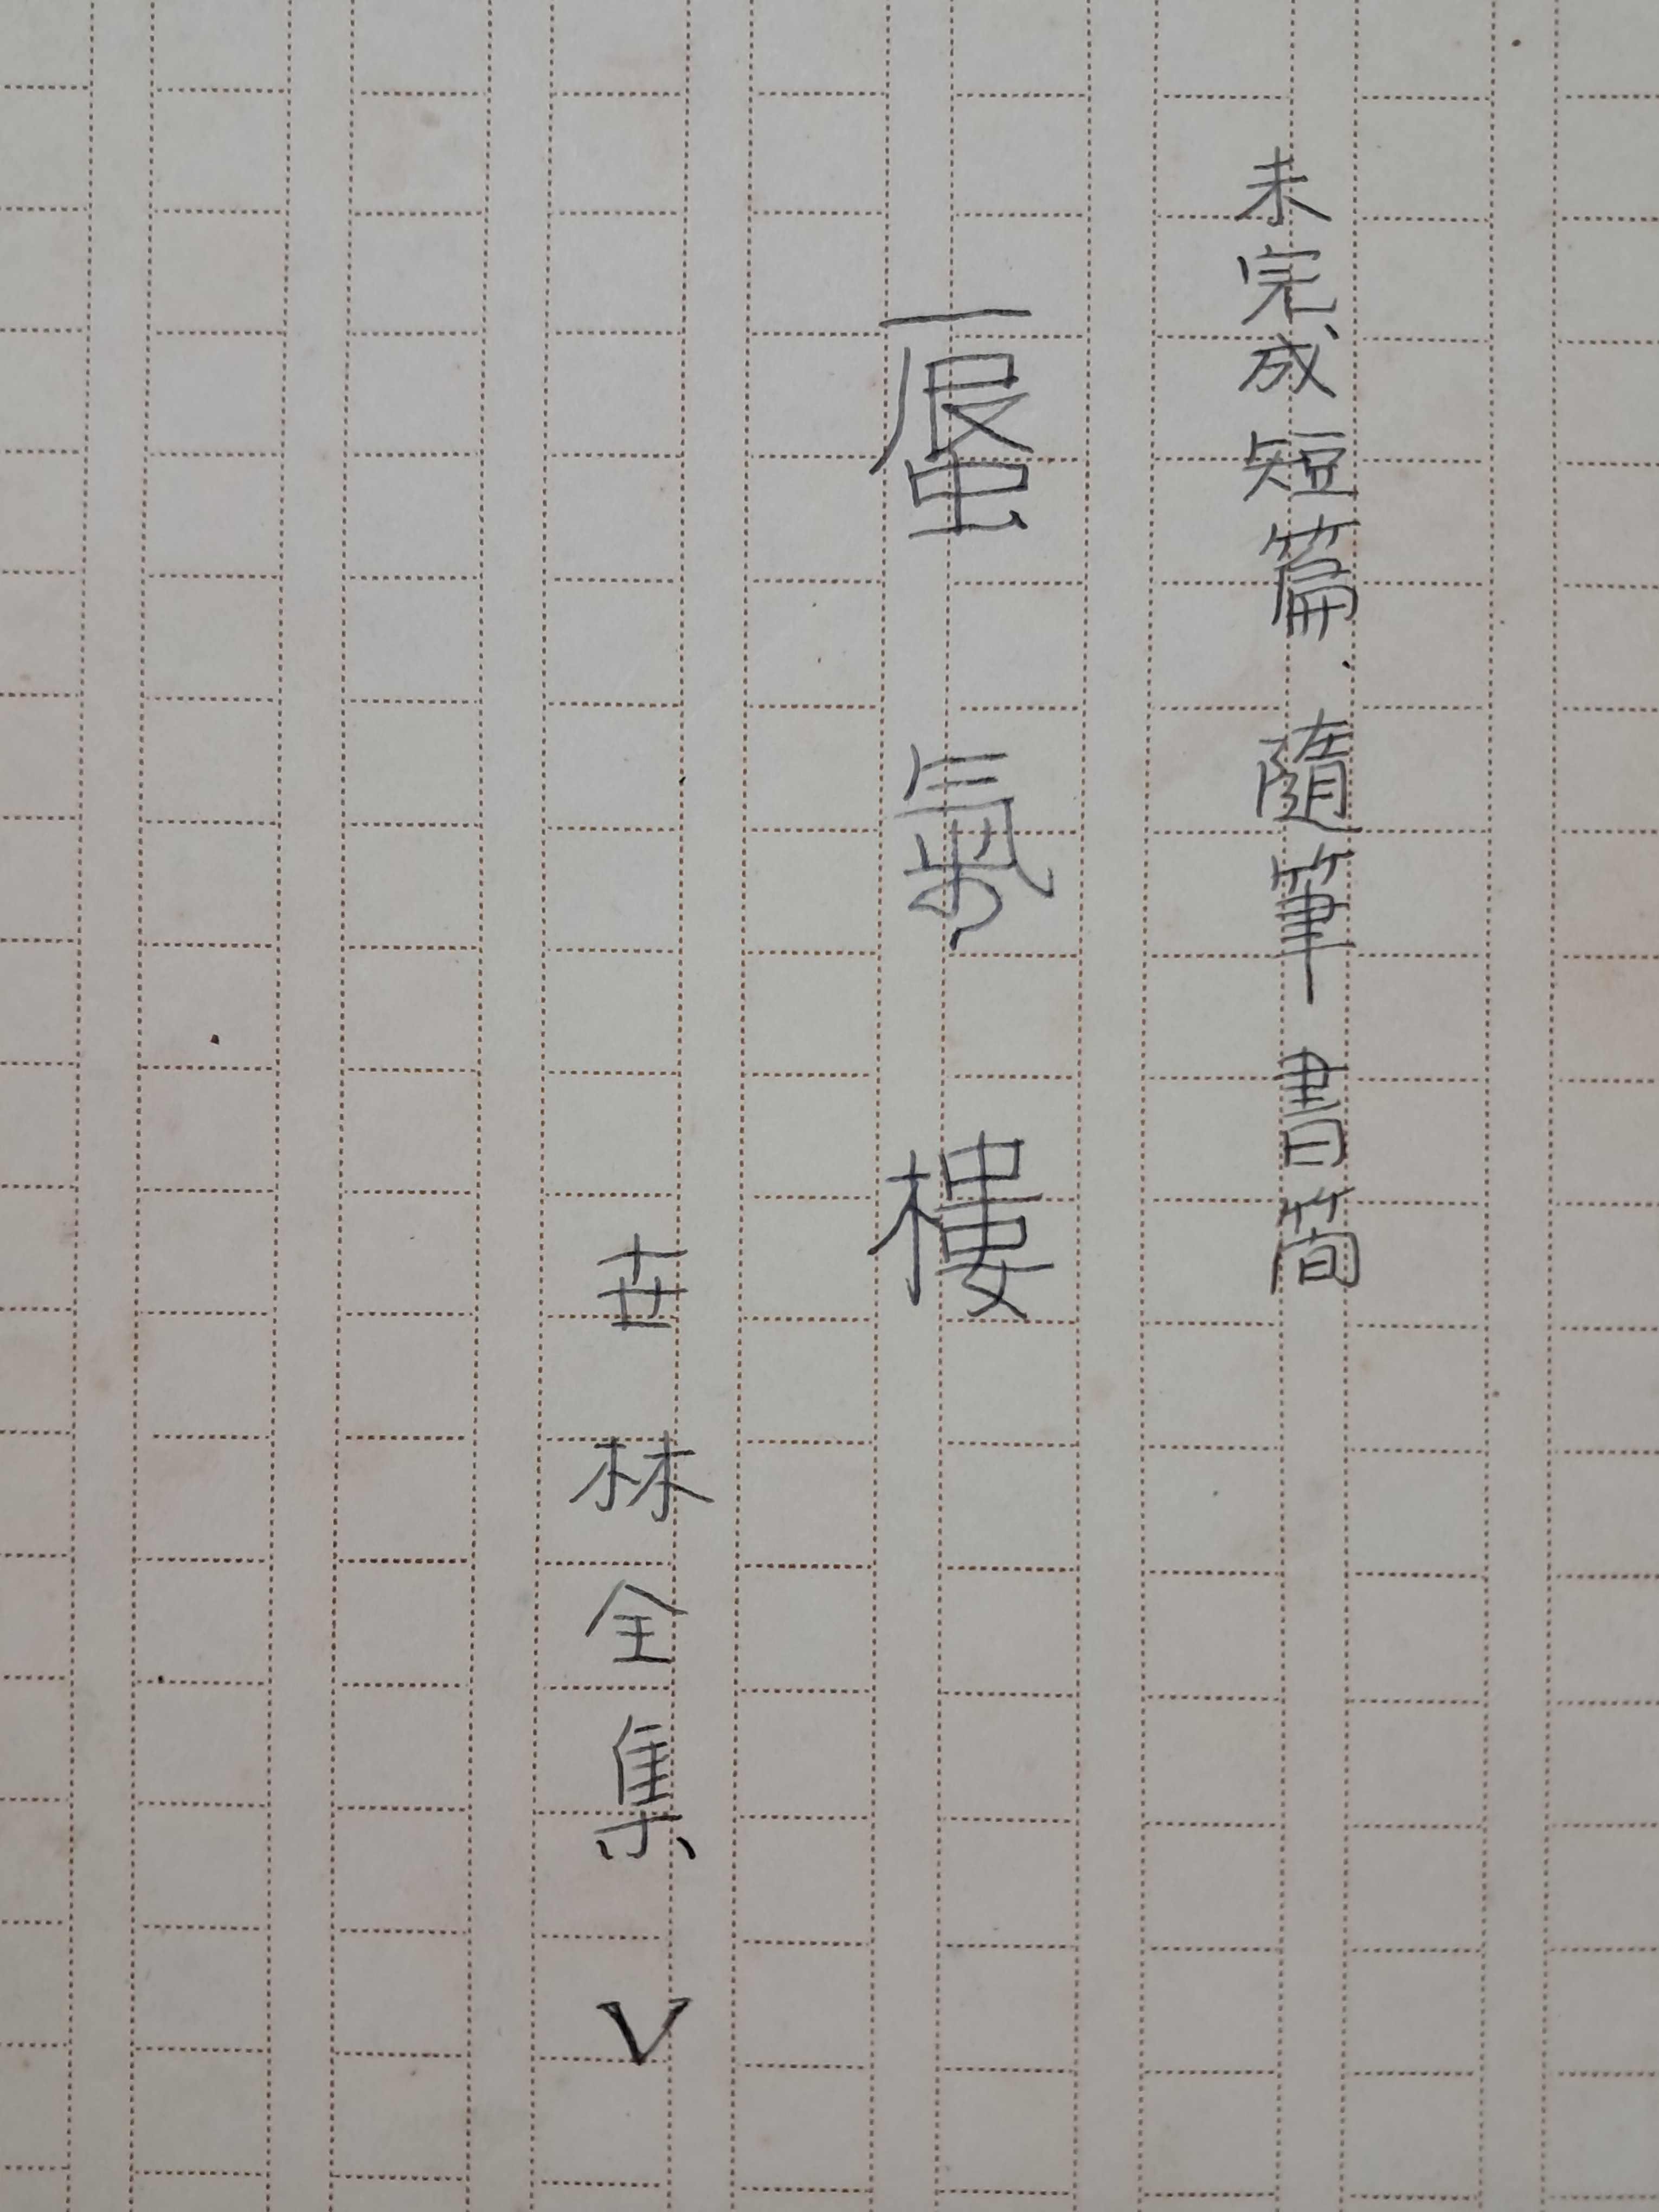 未完成短篇.隨筆 書簡
蜃氣樓
林全集 V